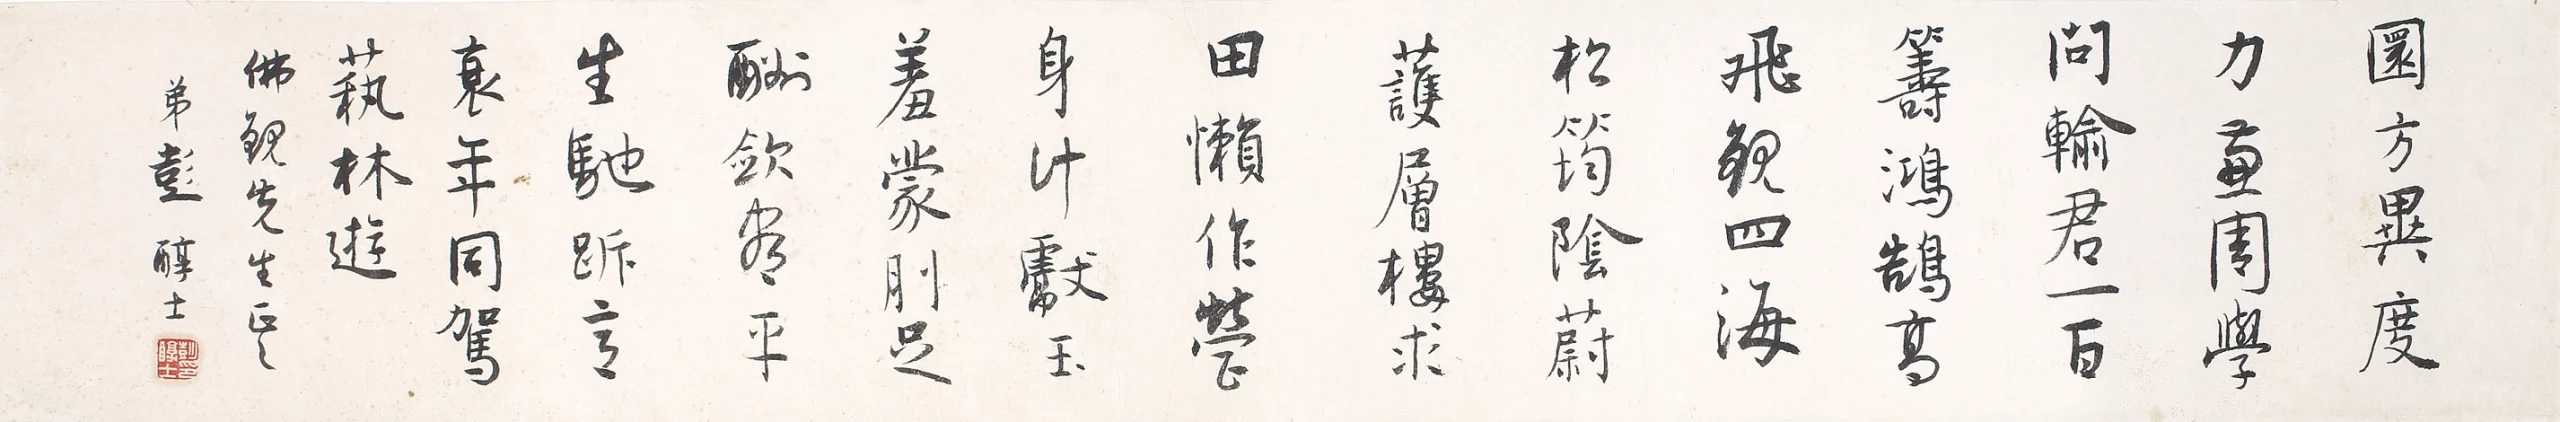 圜方異度
力兼周學
問輸君一百
籌鴻鵠高
飛觀四海
松筠陰蔚
護層樓求
田懶作營
身計獻玉
羞蒙刖足
酬歛盡平
生馳跅意
衰年同駕
藝林遊
佛觀先生正之
弟彭醇士
彭印醇士